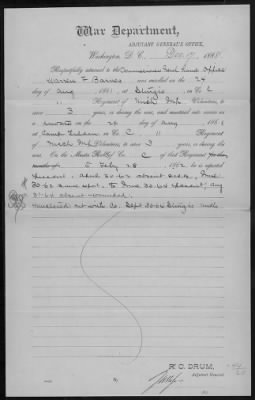 War Department,
ADJUTANT GENERAL'S OFFICE,
Washington, D. C., Dec. 17, 1885
Respectfully returned to the Commissioner Genl Land Office
Warren F Barnes was enrolled on the 24
day of Aug, 1861, at Sturgis in Co C
11 Regiment of Mich Inf Volunteers, to
serve 3 years, or during the war, and mustered into service as a
private on the day of Aug, 186
at Camp in Co C 11 Regiment
of Mich Inf Volunteers, to serve 3 years, or during the
war. On the Muster Roll of Co. C of that Regiment for
to Feby 28, 1862, he is reported
present. April 30.62 absent sick, June
30.62 same rept. to June 30.64 present; Aug
31.64 absent wounded.
Mustered out with Co. Sept 30.64 Sturgis Mich
R. C. DRUM,
Adjutant General.
By